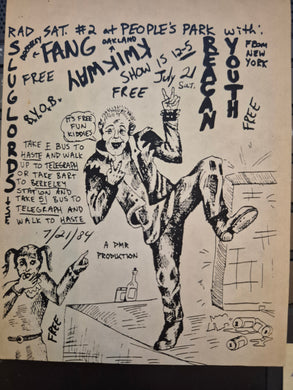 RAD SAT. #2 at PEOPLE'S PARK with:
BERKELEY'S FANG
OAKLAND
KWIKWAY
REAGAN
YOUTH
FROM
NEW
YORK
FREE
SLUGLORDS
FREE
B.Y.O.B.
SHOW IS 12-5
July 21
SAT.
FREE
IT'S FREE
FUN
KIDDIES
TAKE E BUS TO
HASTE AND WALK
UP TO TELEGRAPH
OR TAKE BART
TO BERKELEY
STATION AND
TAKE 51 BUS TO
TELEGRAPH AND
WALK TO HASTE
7/21/84
A DMR
PRODUCTION
FREE